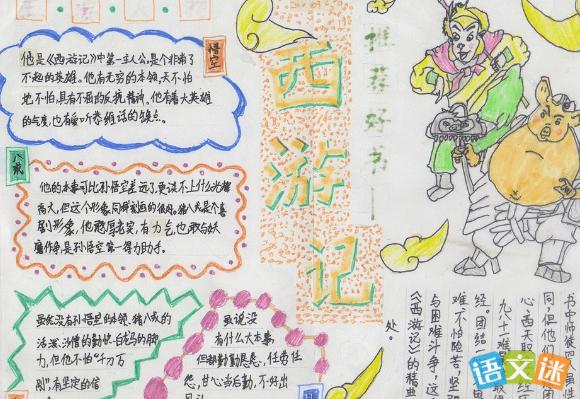 悟空
他是《西游记》中第一主人公,是个非常了
不起的英雄。他有无穷的本领,天不怕
地不怕,具有不屈的反抗精神。他有着大英雄
的气度,也有爱听恭维话的缺点。
八戒
他的本事可比孙悟空差远了,更谈不上什么光辉
高大,但这个形象同样刻画的很好。猪八戒是个喜
剧形象,他憨厚老实,有力气,也敢与妖
魔作争,是孙悟空第一得力助手。
虽然没有孙悟空的本领,猪八戒的
活泼,沙僧的勤快,白龙马的脚
力,但他不怕"千刀万
剐",有坚定的信
虽说没
有什么大本事,
但却勤勤恳恳,任劳任
怨,甘心当后勤,不好出
西游记
推荐好书
书中师徒四人虽性
同,但他们
心,西天取
九八十难
经。团结
难不怕险苦,坚
与困难斗争,这
《西游记》的精华
处。
语文迷